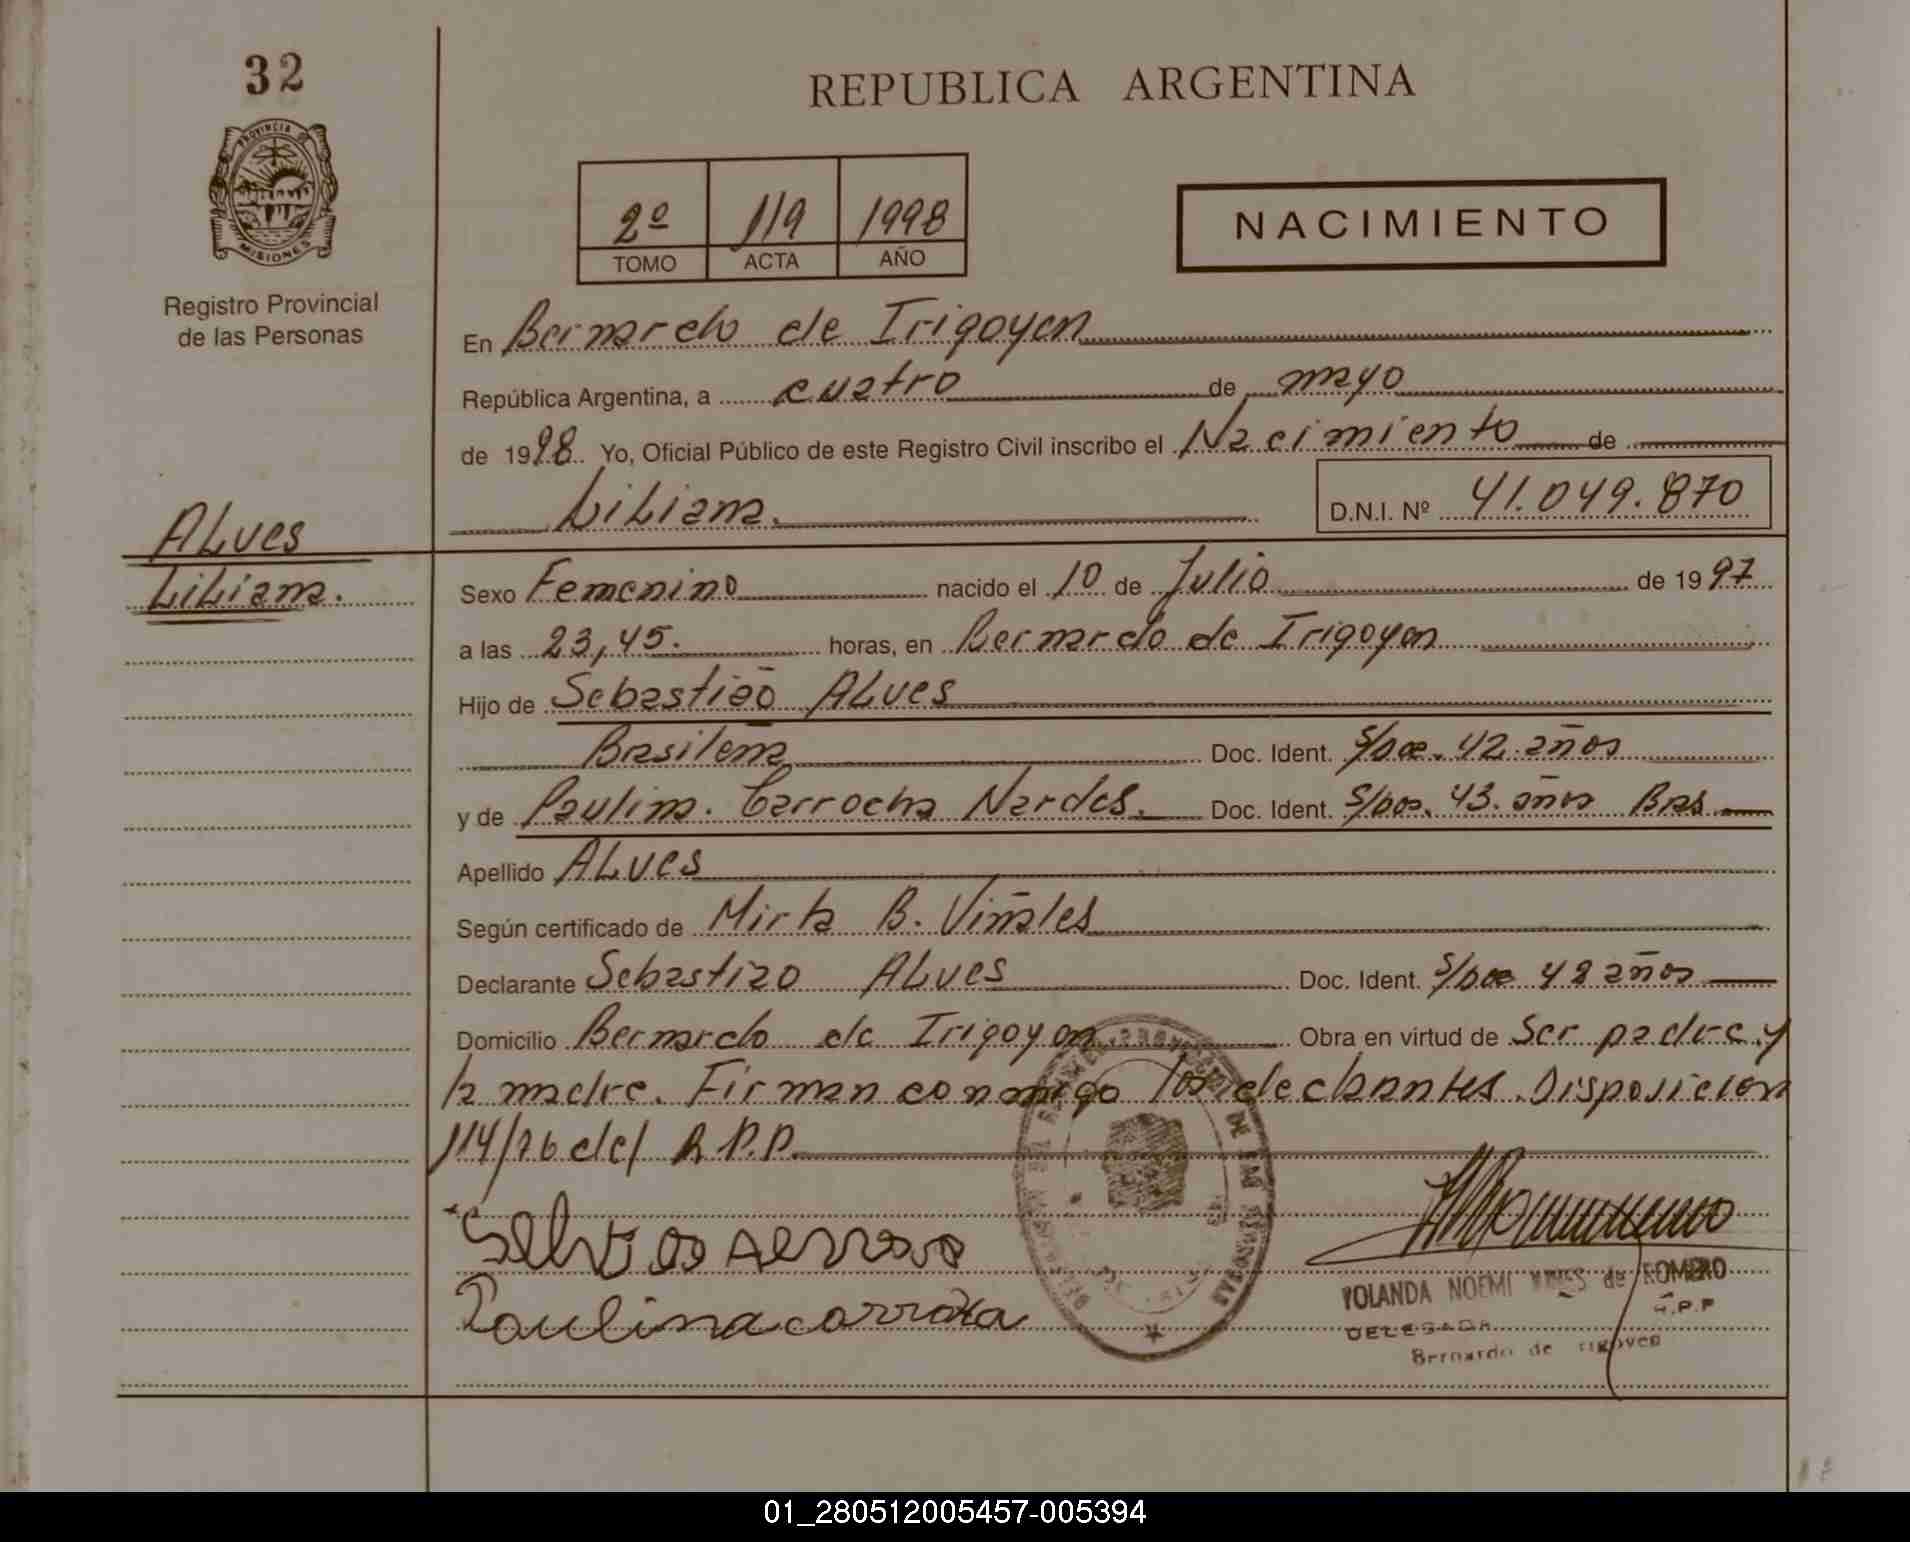 32
REPUBLICA ARGENTINA
PROVINCIA
MISIONES
2º 119 1998
TOMO ACTA AÑO
NACIMIENTO
Registro Provincial
de las Personas
En Bernardo de Irigoyen
República Argentina, a cuatro de mayo
de 1998 Yo, Oficial Público de este Registro Civil inscribo el Nacimiento de
Liliana. D.N.I. Nº 41.049.870
ALves
Liliana.
Sexo Femenino nacido el 10 de Julio de 1997
a las 23,45. horas, en Bernardo de Irigoyen
Hijo de Sebastiaõ ALves
Brasileña Doc. Ident. S/Doc. 42 años
y de Paulina. Carrocha Nardes. Doc. Ident. S/Doc. 43. años Bras
Apellido ALves
Según certificado de Mirta B. Viñales
Declarante Sebastiao ALves Doc. Ident. S/Doc 42 años
Domicilio Bernardo de Irigoyen Obra en virtud de Ser padre y
la madre. Firman conmigo los declarantes. Disposicion
114/76 del R.P.P.
Paulina carrocha
YOLANDA NOEMI de ROMERO
DELEGADA R.P.P
Bernardo de Irigoyen
01_280512005457-005394